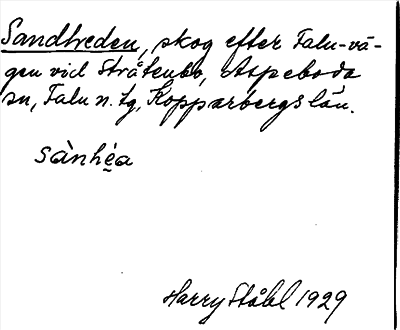 Sandheden, skog efter Falu-vä-
gen vid Stråtenbo, Aspeboda
sn, Falu n. tg, Kopparbergs län.
sànhe̱a
Harry Ståhl 1929